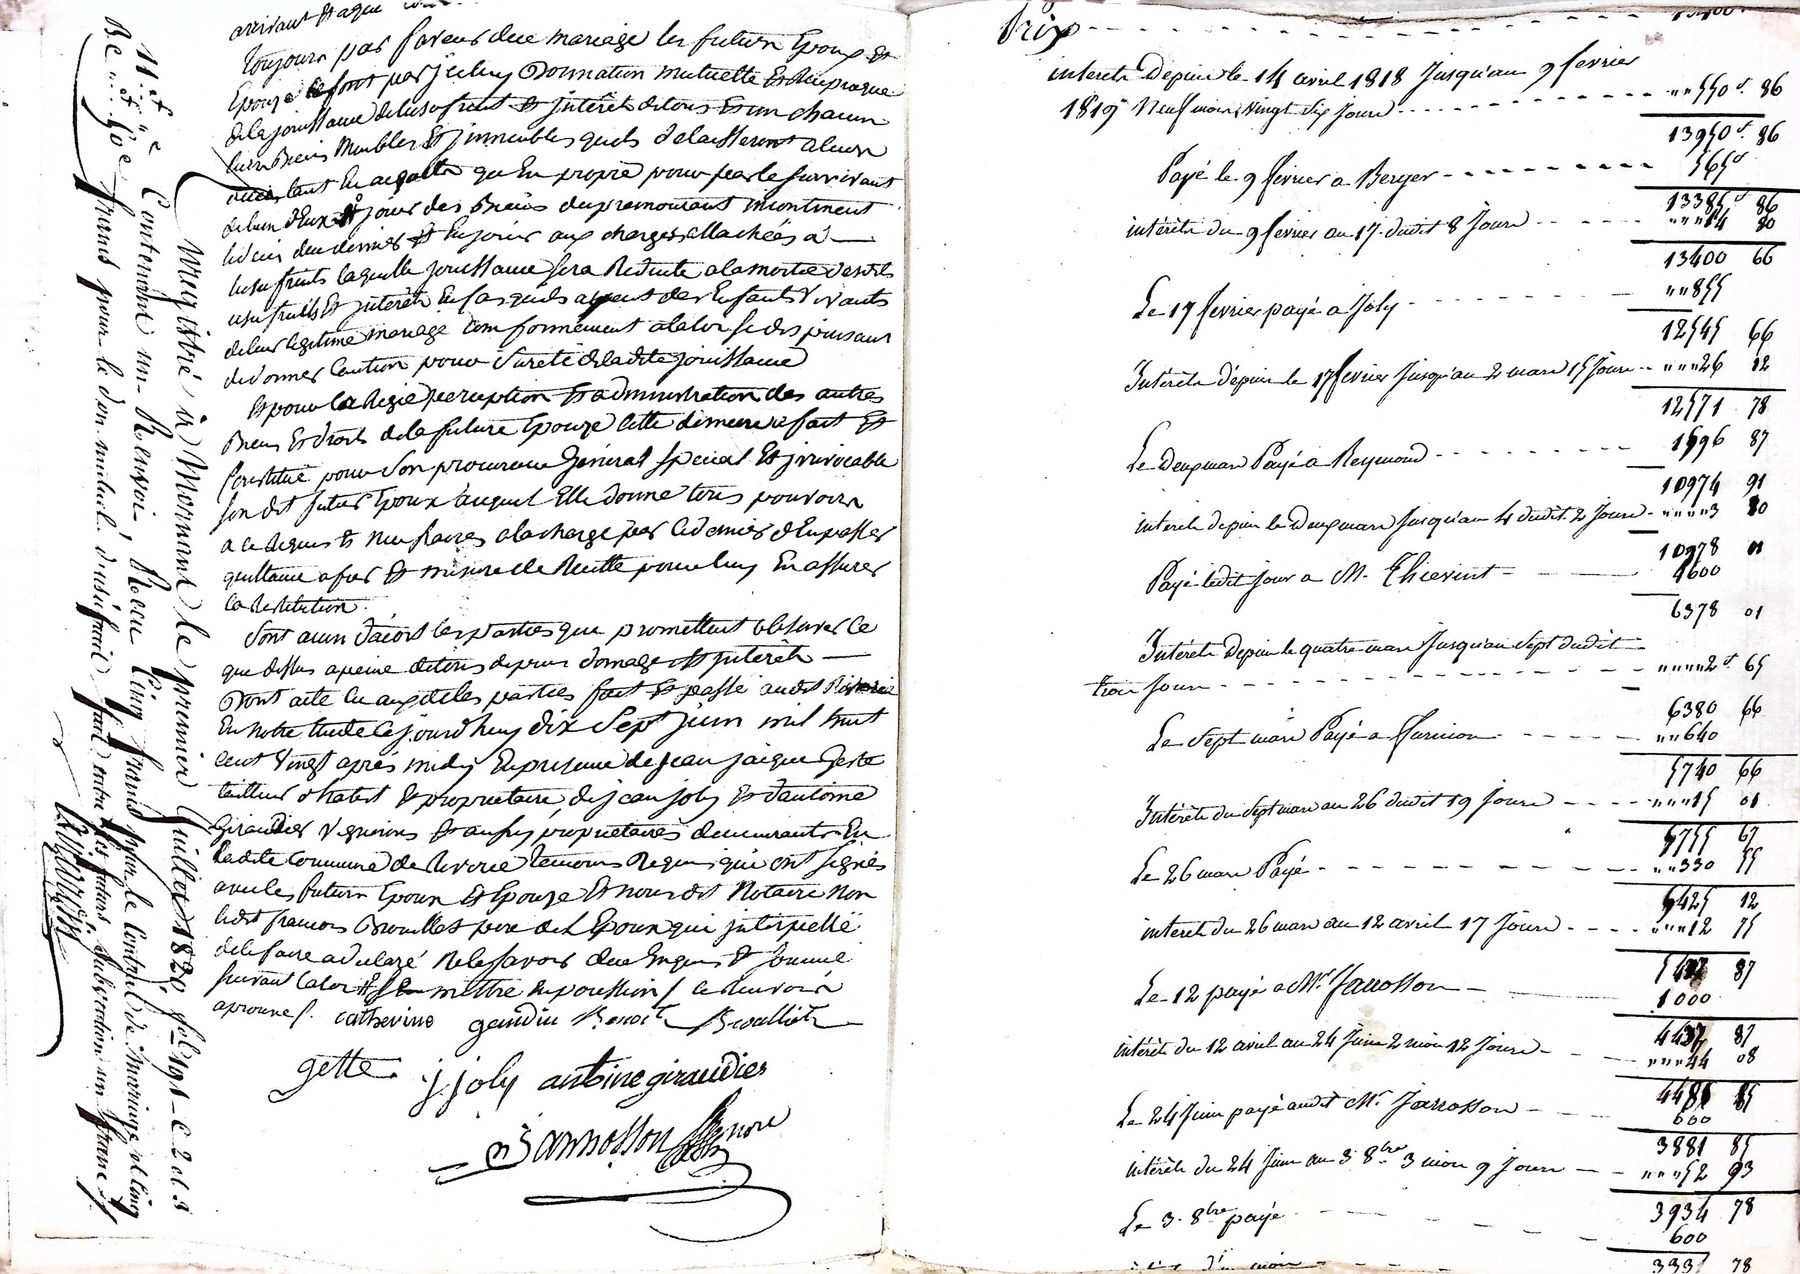 arrivant
toujours par faveur due mariage les futurs Epoux Et
Epouze se font par jceluy Donnation mutuelle Et Reciproque
de la jouissance de lusufruit Et jnterêt de tous Et un chacun
leurs Biens Meubles Et jmmeubles quils delaisseront a leurs
deces tant En acquetts qu En propre pour par le survivant
de lun d'Eux jouir des Biens du premourant incontinent
le deces du dernier Et En jouir aux charges attachées a
lusufruits laquelle jouissance sera Reduite a la moitié desdits
usufruits Et jnterêts En cas quils ayent des Enfants Vivants
de leur legitime mariage Comformement a la loi se dispensant
de donner Caution pour sureté de ladite jouissance
Et pour la Regie perception Et administration des autres
Biens Et droits de la future Epouze cette derniere fait Et
Constitue pour son procureur General special Et jrrevocable
son dit futur Epoux auquel Elle donne tous pouvoirs
a ce Requis Et necessaires a la charge par ce dernier d'En passer
quittance a fur Et mesure de Recette pour luy En assurer
la Restitution.
Sont ainsi d'acord les parties que promettent observer ce
que dessus a peine de tous depens domages Et jnterêts
Dont acte lu auxdites parties fait Et passé audit Riverie
En notre Etude ce jourd'huy dix sept juin mil huit
cent Vingt après midy En presence de jean jacque Gette
tailleur d'habit Et proprietaire, de jean joly Et d'antoine
Giraudier Vignerons Et aussy proprietaires demeurants En
ladite Commune de Riverie temoins Requis qui ont signés
avec les futurs Epoux Et Epouze Et nous dit Notaire non
ledit francois Brouillet pere de l'Epoux qui jnterpellé
de le faire a declaré ne le savoir due Enquis Et Sommé
suivant la loi
approuvés. catherine gaudin Benoit Brouilliet
gette. j. joly antoine giraudier
Jarrosson nore
Enregistré à Mornant le premier Juillet 1820, fol 191 C. 2 et 3
Contenant un Renvoi, Reçu Cinq francs pour le Contrat de Mariage et Cinq
francs pour le don mutuel d'usufruit fait entre les futurs, Subvention un franc
Prix
intérêts Depuis le 14 avril 1818 Jusqu'au 9 fevrier
1819 Neuf mois vingt Six Jours """550f. 86
13950f. 86
Payé le 9 février a Berger 565f
13385f 86
intérêts du 9 fevrier au 17 dudit 8 Jours """14 80
13400 66
Le 17 fevrier payé a Joly ""855
12545 66
Intérêts depuis le 17 fevrier Jusqu'au 2 mars 15 Jours """26 12
12571 78
Le Deux mars Payé a Reymond 1596 87
10974 91
intérêts depuis le Deux mars Jusqu'au 4 dudit 2 Jours """"3 10
10978 01
Payé ledit Jour a M. Thievint 4600
6378 01
Intérêts Depuis le quatre mars Jusqu'au Sept dudit
trois Jours """"2f 65
6380 66
Le Sept mars Payé a Furnion ""640
5740 66
Intérêts du Sept mars au 26 dudit 19 Jours """15 01
5755 67
Le 26 mars Payé ""330 55
5425 12
intérêts du 26 mars au 12 avril 17 Jours """12 75
5437 87
Le 12 payé a Mr. Jarrosson 1000
4437 87
intérêts du 12 avril au 24 Juin 2 mois 12 Jours """44 08
4481 85
Le 24 Juin payé audit Mr. Jarrosson 600
3881 85
intérêts du 24 Juin au 3 8bre 3 mois 9 Jours """52 93
3934 78
Le 3. 8bre payé 600
3334 78